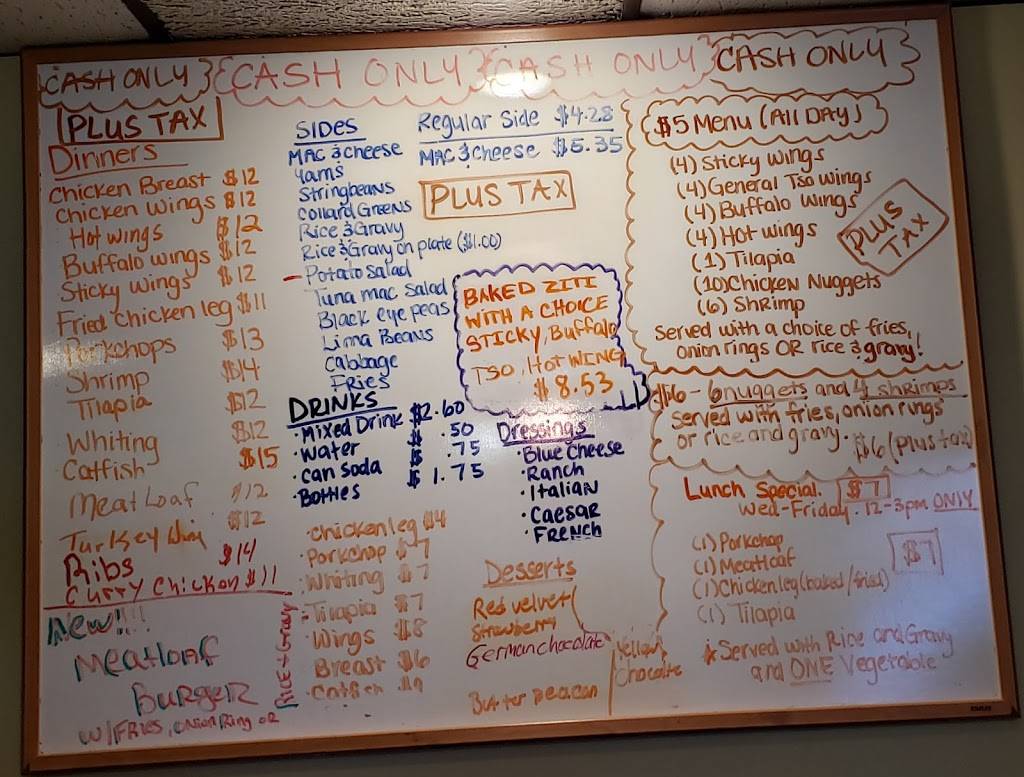 CASH ONLY CASH ONLY CASH ONLY CASH ONLY
PLUS TAX
Dinners
Chicken Breast $12
Chicken Wings $12
Hot wings $12
Buffalo wings $12
Sticky wings $12
Fried Chicken leg $11
Porkchops $13
Shrimp $14
Tilapia $12
Whiting $12
Catfish $15
Meat Loaf $12
Turkey Wing $12
Ribs $14
Curry Chicken $11
New!!!!
Meatloaf
Burger
w/FRIES, ONION Ring OR
RICE + Gravy
SIDES
MAC & Cheese
Yams
Stringbeans
Collard Greens
Rice & Gravy
Rice & Gravy on plate ($1.00)
- Potato salad
Tuna mac salad
Black eye peas
Lima Beans
Cabbage
Fries
Regular Side $4.28
MAC & Cheese $5.35
PLUS TAX
BAKED ZITI
WITH A CHOICE
STICKY, Buffalo
TSO, Hot WING
$8.53
DRINKS
• Mixed Drink $2.60
• Water $ .50
• Can Soda $ .75
• Bottles $ 1.75
Dressings
• Blue Cheese
• Ranch
• Italian
• Caesar
• French
• Chicken leg $4
• Porkchop $7
• Whiting $7
• Tilapia $7
• Wings $8
• Breast $6
• Catfish
Desserts
Red velvet
Strawberry
German chocolate
Butter peacan
Yellow
Chocolate
$5 Menu (All DAY)
(4) Sticky wings
(4) General Tso wings
(4) Buffalo wings
(4) Hot wings
(1) Tilapia
(10) Chicken Nuggets
(6) Shrimp
PLUS TAX
Served with a choice of fries,
onion rings OR rice & gravy!
$6 - 6 nuggets and 4 shrimps
Served with fries, onion rings
or rice and gravy. $6 (Plus tax)
Lunch Special. $7
Wed-Friday. 12-3pm ONLY
(1) Porkchop
(1) Meatloaf
(1) Chicken leg (baked/fried)
(1) Tilapia
$7
* Served with Rice and Gravy
and ONE Vegetable